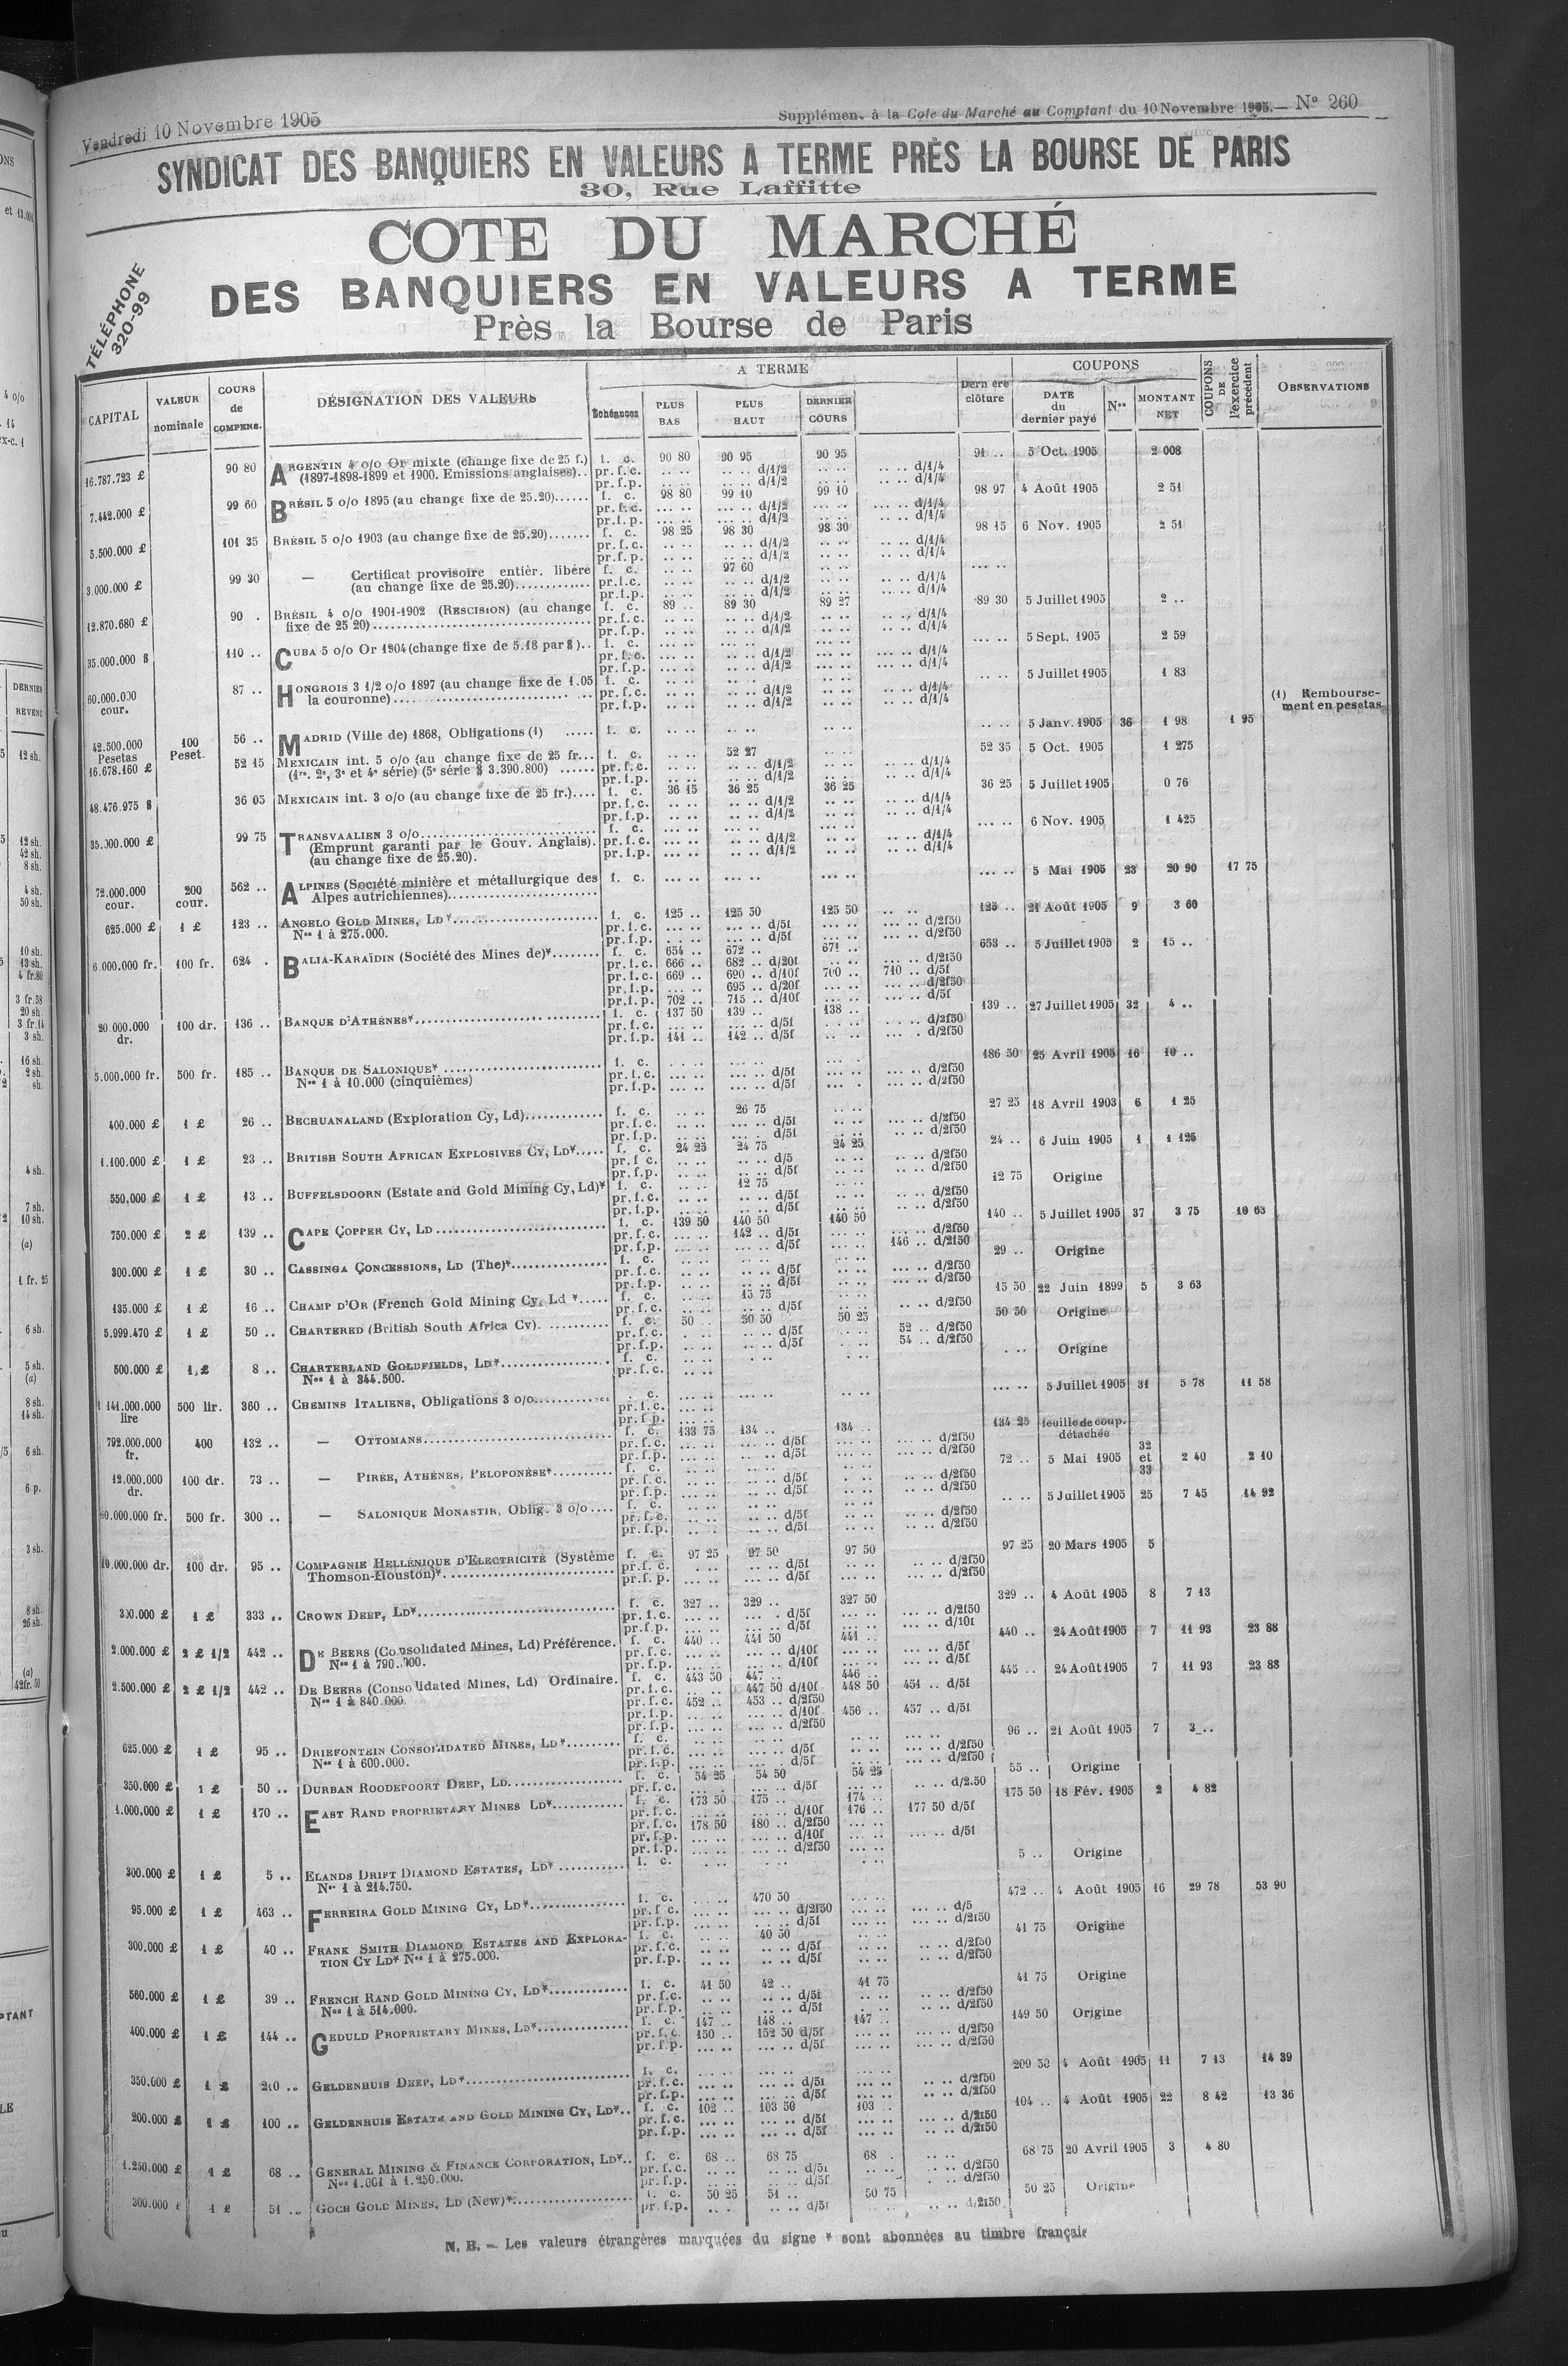 Vendredi 10 Novembre 1905
Supplément à la Cote du Marché au Comptant du 10 Novembre 1905. — N° 260
SYNDICAT DES BANQUIERS EN VALEURS A TERME PRÈS LA BOURSE DE PARIS
30, Rue Laffitte
COTE DU MARCHÉ
DES BANQUIERS EN VALEURS A TERME
Près la Bourse de Paris
TÉLÉPHONE
320-99
CAPITAL VALEUR nominale COURS de COMPENS. DÉSIGNATION DES VALEURS A TERME Échéances PLUS BAS PLUS HAUT DERNIER COURS Dernière clôture COUPONS DATE du dernier payé Nos MONTANT NET COUPONS DE l'exercice précédent OBSERVATIONS
16.787.723 £ 90 80 ARGENTIN 4 o/o Or mixte (change fixe de 25 f.) f. c. 90 80 90 95 90 95 91 .. 5 Oct. 1905 2 008
(1897-1898-1899 et 1900. Emissions anglaises).. pr.f.c. d/1/2 d/1/4
pr.f.p. d/1/2 d/1/4
7.442.000 £ 99 60 BRÉSIL 5 o/o 1895 (au change fixe de 25.20)...... f. c. 98 80 99 10 99 10 98 97 4 Août 1905 2 51
pr.f.c. d/1/2 d/1/4
pr.f.p. d/1/2 d/1/4
5.500.000 £ 101 35 BRÉSIL 5 o/o 1903 (au change fixe de 25.20)....... f. c. 98 25 98 30 98 30 98 15 6 Nov. 1905 2 51
pr.f.c. d/1/2 d/1/4
pr.f.p. d/1/2 d/1/4
3.000.000 £ 99 30 — Certificat provisoire entièr. libéré f. c. 97 60
(au change fixe de 25.20)............. pr.f.c. d/1/2 d/1/4
pr.f.p. d/1/2 d/1/4
12.870.680 £ 90 . BRÉSIL 4 o/o 1901-1902 (RESCISION) (au change f. c. 89 .. 89 30 89 27 89 30 5 Juillet 1905 2 ..
fixe de 25 20)........ pr.f.c. d/1/2 d/1/4
pr.f.p. d/1/2 d/1/4
35.000.000 $ 110 .. CUBA 5 o/o Or 1904 (change fixe de 5.18 par $).. f. c. 5 Sept. 1905 2 59
pr.f.c. d/1/2 d/1/4
pr.f.p. d/1/2 d/1/4
60.000.000 cour. 87 .. HONGROIS 3 1/2 o/o 1897 (au change fixe de 1.05 f. c. 5 Juillet 1905 1 83
la couronne)........ pr.f.c. d/1/2 d/1/4
pr.f.p. d/1/2 d/1/4
(1) Remboursement en pesetas
42.500.000 Pesetas 100 Peset. 56 .. MADRID (Ville de) 1868, Obligations (1) ..... f. c. 5 Janv. 1905 36 1 98 1 95
16.678.160 £ 52 15 MEXICAIN int. 5 o/o (au change fixe de 25 fr... f. c. 52 27 52 35 5 Oct. 1905 1 275
(1re. 2e, 3e et 4e série) (5e série $ 3.390.800) ...... pr.f.c. d/1/2 d/1/4
pr.f.p. d/1/2 d/1/4
48.476.975 $ 36 05 MEXICAIN int. 3 o/o (au change fixe de 25 fr.).... f. c. 36 15 36 25 36 25 36 25 5 Juillet 1905 0 76
pr.f.c. d/1/2 d/1/4
pr.f.p. d/1/2 d/1/4
35.000.000 £ 99 75 TRANSVAALIEN 3 o/o........ f. c. 6 Nov. 1905 1 425
(Emprunt garanti par le Gouv. Anglais). pr.f.c. d/1/2 d/1/4
(au change fixe de 25.20). pr.f.p. d/1/2 d/1/4
72.000.000 cour. 200 cour. 562 .. ALPINES (Société minière et métallurgique des f. c. 5 Mai 1905 23 20 90 17 75
Alpes autrichiennes)........
625.000 £ 1 £ 123 .. ANGELO GOLD MINES, LD*........ f. c. 125 .. 125 50 125 50 125 .. 21 Août 1905 9 3 60
Nos 1 à 275.000. pr.f.c. d/5f d/2f50
pr.f.p. d/5f d/2f50
6.000.000 fr. 100 fr. 624 . BALIA-KARAÏDIN (Société des Mines de)*........ f. c. 654 .. 672 .. 671 .. 653 .. 5 Juillet 1905 2 15 ..
pr.f.c. 666 .. 682 .. d/20f d/2f50
pr.f.c. 669 .. 690 .. d/10f 700 .. 710 .. d/5f
pr.f.p. 695 .. d/20f d/2f50
pr.f.p. 702 .. 715 .. d/10f d/5f
20.000.000 dr. 100 dr. 136 .. BANQUE D'ATHÈNES*........ f. c. 137 50 139 .. 138 .. 139 .. 27 Juillet 1905 32 4 ..
pr.f.c. d/5f d/2f50
pr.f.p. 141 .. 142 .. d/5f d/2f50
5.000.000 fr. 500 fr. 185 .. BANQUE DE SALONIQUE* ........ f. c. 186 50 25 Avril 1905 16 10 ..
Nos 1 à 10.000 (cinquièmes) pr.f.c. d/5f d/2f50
pr.f.p. d/5f d/2f50
400.000 £ 1 £ 26 .. BECHUANALAND (Exploration Cy, Ld)............ f. c. 26 75 27 25 18 Avril 1903 6 1 25
pr.f.c. d/5f d/2f50
pr.f.p. d/5f d/2f50
1.100.000 £ 1 £ 23 .. BRITISH SOUTH AFRICAN EXPLOSIVES CY, LD*..... f. c. 24 25 24 75 24 25 24 .. 6 Juin 1905 1 1 125
pr.f.c. d/5 d/2f50
pr.f.p. d/5f d/2f50
550.000 £ 1 £ 13 .. BUFFELSDOORN (Estate and Gold Mining Cy, Ld)* f. c. 12 75 12 75 Origine
pr.f.c. d/5f d/2f50
pr.f.p. d/5f d/2f50
750.000 £ 2 £ 139 .. CAPE COPPER CY, LD........ f. c. 139 50 140 50 140 50 140 .. 5 Juillet 1905 37 3 75 10 63
pr.f.c. 142 .. d/5f d/2f50
pr.f.p. d/5f 146 .. d/2f50
300.000 £ 1 £ 30 .. CASSINGA CONCESSIONS, LD (The)*........ f. c. 29 .. Origine
pr.f.c. d/5f d/2f50
pr.f.p. d/5f d/2f50
135.000 £ 1 £ 16 .. CHAMP D'OR (French Gold Mining Cy, Ld *..... f. c. 15 75 15 50 22 Juin 1899 5 3 63
pr.f.c. d/5f d/2f50
5.999.470 £ 1 £ 50 .. CHARTERED (British South Africa Cy). .......... f. c. 50 .. 50 50 50 25 50 50 Origine
pr.f.c. d/5f 52 .. d/2f50
pr.f.p. d/5f 54 .. d/2f50
500.000 £ 1 £ 8 .. CHARTERLAND GOLDFIELDS, LD*........ f. c. Origine
Nos 1 à 344.500. pr.f.c.
1 141.000.000 lire 500 lir. 360 .. CHEMINS ITALIENS, Obligations 3 o/o........ f. c. 5 Juillet 1905 31 5 78 11 58
pr.f.c.
pr.f.p.
792.000.000 fr. 400 132 .. — OTTOMANS........ f. c. 133 75 134 .. 134 .. 134 25 feuille de coup. détachée
pr.f.c. d/5f d/2f50
pr.f.p. d/5f d/2f50
12.000.000 dr. 100 dr. 73 .. — PIRÉE, ATHÈNES, PELOPONÈSE*.......... f. c. 72 .. 5 Mai 1905 32 et 33 2 40 2 10
pr.f.c. d/5f d/2f50
pr.f.p. d/5f d/2f50
60.000.000 fr. 500 fr. 300 .. — SALONIQUE MONASTIR, Oblig. 3 o/o.... f. c. 5 Juillet 1905 25 7 45 14 92
pr.f.c. d/5f d/2f50
pr.f.p. d/5f d/2f50
10.000.000 dr. 100 dr. 95 .. COMPAGNIE HELLÉNIQUE D'ELECTRICITÉ (Système f. c. 97 25 97 50 97 50 97 25 20 Mars 1905 5
Thomson-Houston)*........ pr.f.c. d/5f d/2f50
pr.f.p. d/5f d/2f50
300.000 £ 1 £ 333 .. CROWN DEEP, LD*........ f. c. 327 .. 329 .. 327 50 329 .. 4 Août 1905 8 7 13
pr.f.c. d/5f d/2f50
pr.f.p. d/5f d/10f
2.000.000 £ 2 £ 1/2 442 .. DE BEERS (Consolidated Mines, Ld) Préférence. f. c. 440 .. 441 50 441 .. 440 .. 24 Août 1905 7 11 93 23 88
Nos 1 à 790.000. pr.f.c. d/10f d/5f
pr.f.p. d/10f d/5f
2.500.000 £ 2 £ 1/2 442 .. DE BEERS (Consolidated Mines, Ld) Ordinaire. f. c. 443 50 447 .. 446 .. 445 .. 24 Août 1905 7 11 93 23 88
Nos 1 à 840.000. pr.f.c. 447 50 d/10f 448 50 451 .. d/5f
pr.f.c. 452 .. 453 .. d/2f50
pr.f.p. d/10f 456 .. 457 .. d/5f
pr.f.p. d/2f50
625.000 £ 1 £ 95 .. DRIEFONTEIN CONSOLIDATED MINES, LD*........ f. c. 96 .. 21 Août 1905 7 3 ..
Nos 1 à 600.000. pr.f.c. d/5f d/2f50
pr.f.p. d/5f d/2f50
350.000 £ 1 £ 50 .. DURBAN ROODEPOORT DEEP, LD........ f. c. 54 25 54 50 54 25 55 .. Origine
pr.f.c. d/5f d/2.50
1.000.000 £ 1 £ 170 .. EAST RAND PROPRIETARY MINES LD*........ f. c. 173 50 175 .. 174 .. 175 50 18 Fév. 1905 2 4 82
pr.f.c. d/10f 176 .. 177 50 d/5f
pr.f.c. 178 50 180 .. d/2f50
pr.f.p. d/10f d/5f
pr.f.p. d/2f50
300.000 £ 1 £ 5 .. ELANDS DRIFT DIAMOND ESTATES, LD* ........ f. c. 5 .. Origine
Nos 1 à 214.750.
95.000 £ 1 £ 463 .. FERREIRA GOLD MINING CY, LD*........ f. c. 470 50 472 .. 4 Août 1905 16 29 78 53 90
pr.f.c. d/2f50 d/5
pr.f.p. d/5f d/2f50
300.000 £ 1 £ 40 .. FRANK SMITH DIAMOND ESTATES AND EXPLORA- f. c. 40 50 41 75 Origine
TION CY LD* Nos 1 à 275.000. pr.f.c. d/5f d/2f50
pr.f.p. d/5f d/2f50
560.000 £ 1 £ 39 .. FRENCH RAND GOLD MINING CY, LD*........ f. c. 41 50 42 .. 41 75 41 75 Origine
Nos 1 à 514.000. pr.f.c. d/5f d/2f50
pr.f.p. d/5f d/2f50
400.000 £ 1 £ 144 .. GEDULD PROPRIETARY MINES, LD*........ f. c. 147 .. 148 .. 147 .. 149 50 Origine
pr.f.c. 150 .. 152 50 d/5f d/2f50
pr.f.p. d/5f d/2f50
350.000 £ 1 £ 210 .. GELDENHUIS DEEP, LD*........ f. c. 209 50 4 Août 1905 11 7 13 14 39
pr.f.c. d/5f d/2f50
pr.f.p. d/5f d/2f50
200.000 £ 1 £ 100 .. GELDENHUIS ESTATE AND GOLD MINING CY, LD*.. f. c. 102 .. 103 50 103 .. 104 .. 4 Août 1905 22 8 42 13 36
pr.f.c. d/5f d/2f50
pr.f.p. d/5f d/2f50
1.250.000 £ 1 £ 68 .. GENERAL MINING & FINANCE CORPORATION, LD*.. f. c. 68 .. 68 75 68 . 68 75 20 Avril 1905 3 4 80
Nos 1.001 à 1.250.000. pr.f.c. d/5f d/2f50
pr.f.p. d/5f d/2f50
300.000 £ 1 £ 51 .. GOCH GOLD MINES, LD (New)*........ f. c. 50 25 51 .. 50 75 50 25 Origine
pr.f.p. d/5f d/2f50
N. B. — Les valeurs étrangères marquées du signe * sont abonnées au timbre français